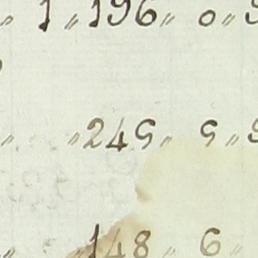 1 〃 196 〃 0 〃
〃 249 〃 9 〃
148 〃 6 〃